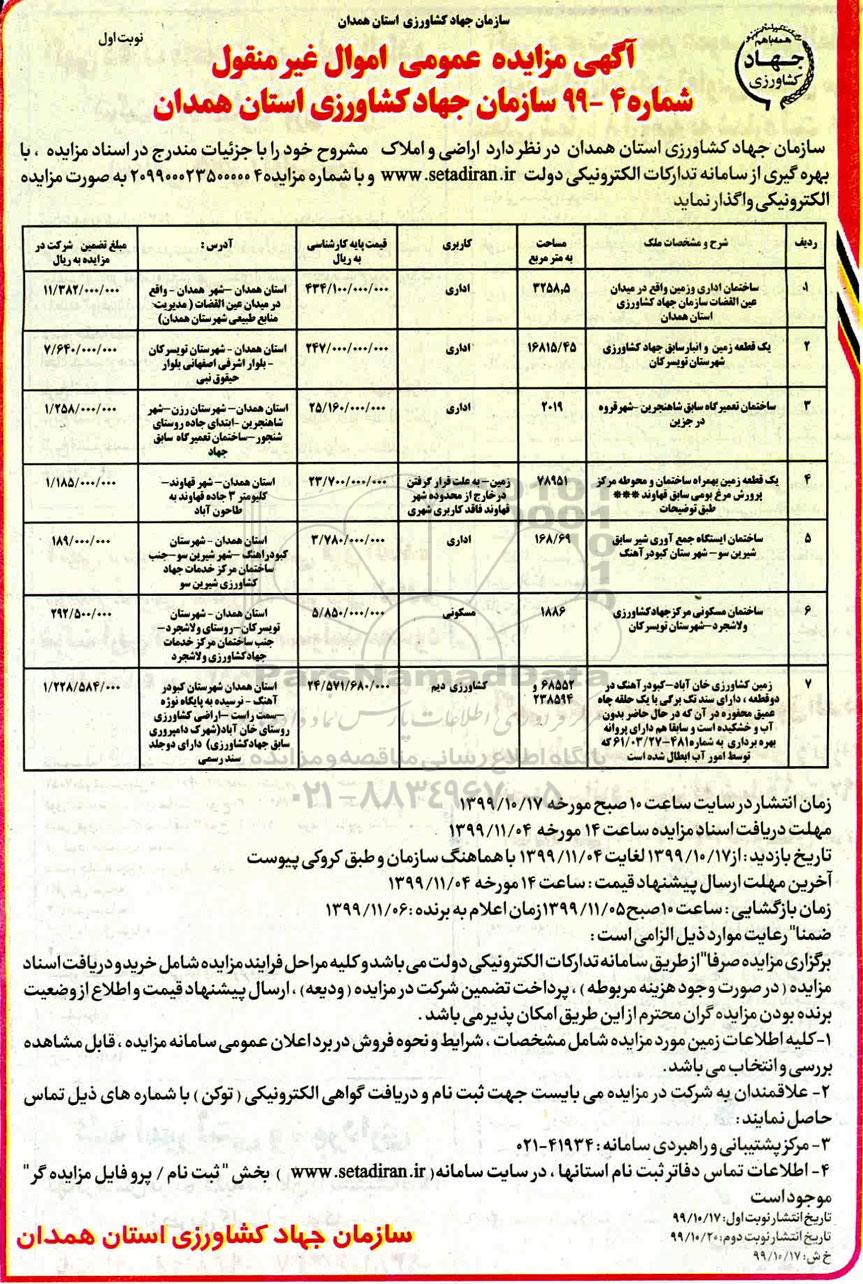 سازمان جهاد کشاورزی استان همدان
نوبت اول
همه با هم
جهاد
کشاورزی
آگهی مزایده عمومی اموال غیر منقول
شماره ۴-۹۹ سازمان جهاد کشاورزی استان همدان
سازمان جهاد کشاورزی استان همدان در نظر دارد اراضی و املاک مشروح خود را با جزئیات مندرج در اسناد مزایده ، با
بهره گیری از سامانه تدارکات الکترونیکی دولت www.setadiran.ir و با شماره مزایده ۲۰۹۹۰۰۰۲۳۵۰۰۰۰۰۴ به صورت مزایده
الکترونیکی واگذار نماید
ردیف | شرح و مشخصات ملک | مساحت به متر مربع | کاربری | قیمت پایه کارشناسی به ریال | آدرس : | مبلغ تضمین شرکت در مزایده به ریال
۱ | ساختمان اداری وزمین واقع در میدان عین القضات سازمان جهاد کشاورزی استان همدان | ۳۲۵۸,۵ | اداری | ۴۳۴/۱۰۰/۰۰۰/۰۰۰ | استان همدان –شهر همدان - واقع در میدان عین القضات ( مدیریت منابع طبیعی شهرستان همدان) | ۱۱/۳۸۲/۰۰۰/۰۰۰
۲ | یک قطعه زمین و انبار سابق جهاد کشاورزی شهرستان تویسرکان | ۱۶۸۱۵/۴۵ | اداری | ۲۴۷/۰۰۰/۰۰۰/۰۰۰ | استان همدان - شهرستان تویسرکان - بلوار اشرفی اصفهانی بلوار حیقوق نبی | ۷/۶۴۰/۰۰۰/۰۰۰
۳ | ساختمان تعمیرگاه سابق شاهنجرین -شهر قروه در جزین | ۲۰۱۹ | اداری | ۲۵/۱۶۰/۰۰۰/۰۰۰ | استان همدان – شهرستان رزن –شهر شاهنجرین -ابتدای جاده روستای شنجور –ساختمان تعمیرگاه سابق جهاد | ۱/۲۵۸/۰۰۰/۰۰۰
۴ | یک قطعه زمین بهمراه ساختمان و محوطه مرکز پرورش مرغ بومی سابق قهاوند *** طبق توضیحات | ۷۸۹۵۱ | زمین – به علت قرار گرفتن در خارج از محدوده شهر قهاوند فاقد کاربری شهری | ۲۳/۷۰۰/۰۰۰/۰۰۰ | استان همدان – شهر قهاوند – کلیومتر ۳ جاده قهاوند به طاحون آباد | ۱/۱۸۵/۰۰۰/۰۰۰
۵ | ساختمان ایستگاه جمع آوری شیر سابق شیرین سو – شهرستان کبودرآهنگ | ۱۶۸/۶۹ | اداری | ۳/۷۸۰/۰۰۰/۰۰۰ | استان همدان - شهرستان کبودراهنگ –شهر شیرین سو –جنب ساختمان مرکز خدمات جهاد کشاورزی شیرین سو | ۱۸۹/۰۰۰/۰۰۰
۶ | ساختمان مسکونی مرکز جهاد کشاورزی ولاشجرد –شهرستان تویسرکان | ۱۸۸۶ | مسکونی | ۵/۸۵۰/۰۰۰/۰۰۰ | استان همدان - شهرستان تویسرکان –روستای ولاشجرد – جنب ساختمان مرکز خدمات جهاد کشاورزی ولاشجرد | ۲۹۲/۵۰۰/۰۰۰
۷ | زمین کشاورزی خان آباد –کبودرآهنگ در دوقطعه ، دارای سند تک برگی با یک حلقه چاه عمیق محفوره در آن که در حال حاضر بدون آب و خشکیده است و سابقا هم دارای پروانه بهره برداری به شماره ۴۸۱-۶۱/۰۳/۲۷ که توسط امور آب ابطال شده است | ۶۸۵۵۲ و ۲۳۸۵۹۴ | کشاورزی دیم | ۲۴/۵۷۱/۶۸۰/۰۰۰ | استان همدان شهرستان کبودر آهنگ - نرسیده به پایگاه نوژه –سمت راست –اراضی کشاورزی روستای خان آباد(شهرک دامپروری سابق جهاد کشاورزی) دارای دوجلد سند رسمی | ۱/۲۲۸/۵۸۴/۰۰۰
ParsNamadData
پایگاه اطلاع رسانی مناقصه و مزایده
۰۲۱-۸۸۳۴۹۶۷۰-۵
زمان انتشار در سایت ساعت ۱۰ صبح مورخه ۱۳۹۹/۱۰/۱۷
مهلت دریافت اسناد مزایده ساعت ۱۴ مورخه ۱۳۹۹/۱۱/۰۴
تاریخ بازدید : از ۱۳۹۹/۱۰/۱۷ لغایت ۱۳۹۹/۱۱/۰۴ با هماهنگ سازمان و طبق کروکی پیوست
آخرین مهلت ارسال پیشنهاد قیمت : ساعت ۱۴ مورخه ۱۳۹۹/۱۱/۰۴
زمان بازگشایی : ساعت ۱۰صبح ۱۳۹۹/۱۱/۰۵ زمان اعلام به برنده : ۱۳۹۹/۱۱/۰۶
ضمنا" رعایت موارد ذیل الزامی است :
برگزاری مزایده صرفا" از طریق سامانه تدارکات الکترونیکی دولت می باشد و کلیه مراحل فرایند مزایده شامل خرید و دریافت اسناد
مزایده ( در صورت وجود هزینه مربوطه ) ، پرداخت تضمین شرکت در مزایده ( ودیعه) ، ارسال پیشنهاد قیمت و اطلاع از وضعیت
برنده بودن مزایده گران محترم از این طریق امکان پذیر می باشد .
۱-کلیه اطلاعات زمین مورد مزایده شامل مشخصات ، شرایط و نحوه فروش در برد اعلان عمومی سامانه مزایده ، قابل مشاهده
بررسی و انتخاب می باشد.
۲- علاقمندان به شرکت در مزایده می بایست جهت ثبت نام و دریافت گواهی الکترونیکی ( توکن ) با شماره های ذیل تماس
حاصل نمایند :
۳- مرکز پشتیبانی و راهبردی سامانه : ۴۱۹۳۴-۰۲۱
۴- اطلاعات تماس دفاتر ثبت نام استانها ، در سایت سامانه( www.setadiran.ir ) بخش " ثبت نام / پروفایل مزایده گر"
موجود است
تاریخ انتشار نوبت اول : ۹۹/۱۰/۱۷
تاریخ انتشار نوبت دوم : ۹۹/۱۰/۲۰
خ ش : ۹۹/۱۰/۱۷
سازمان جهاد کشاورزی استان همدان